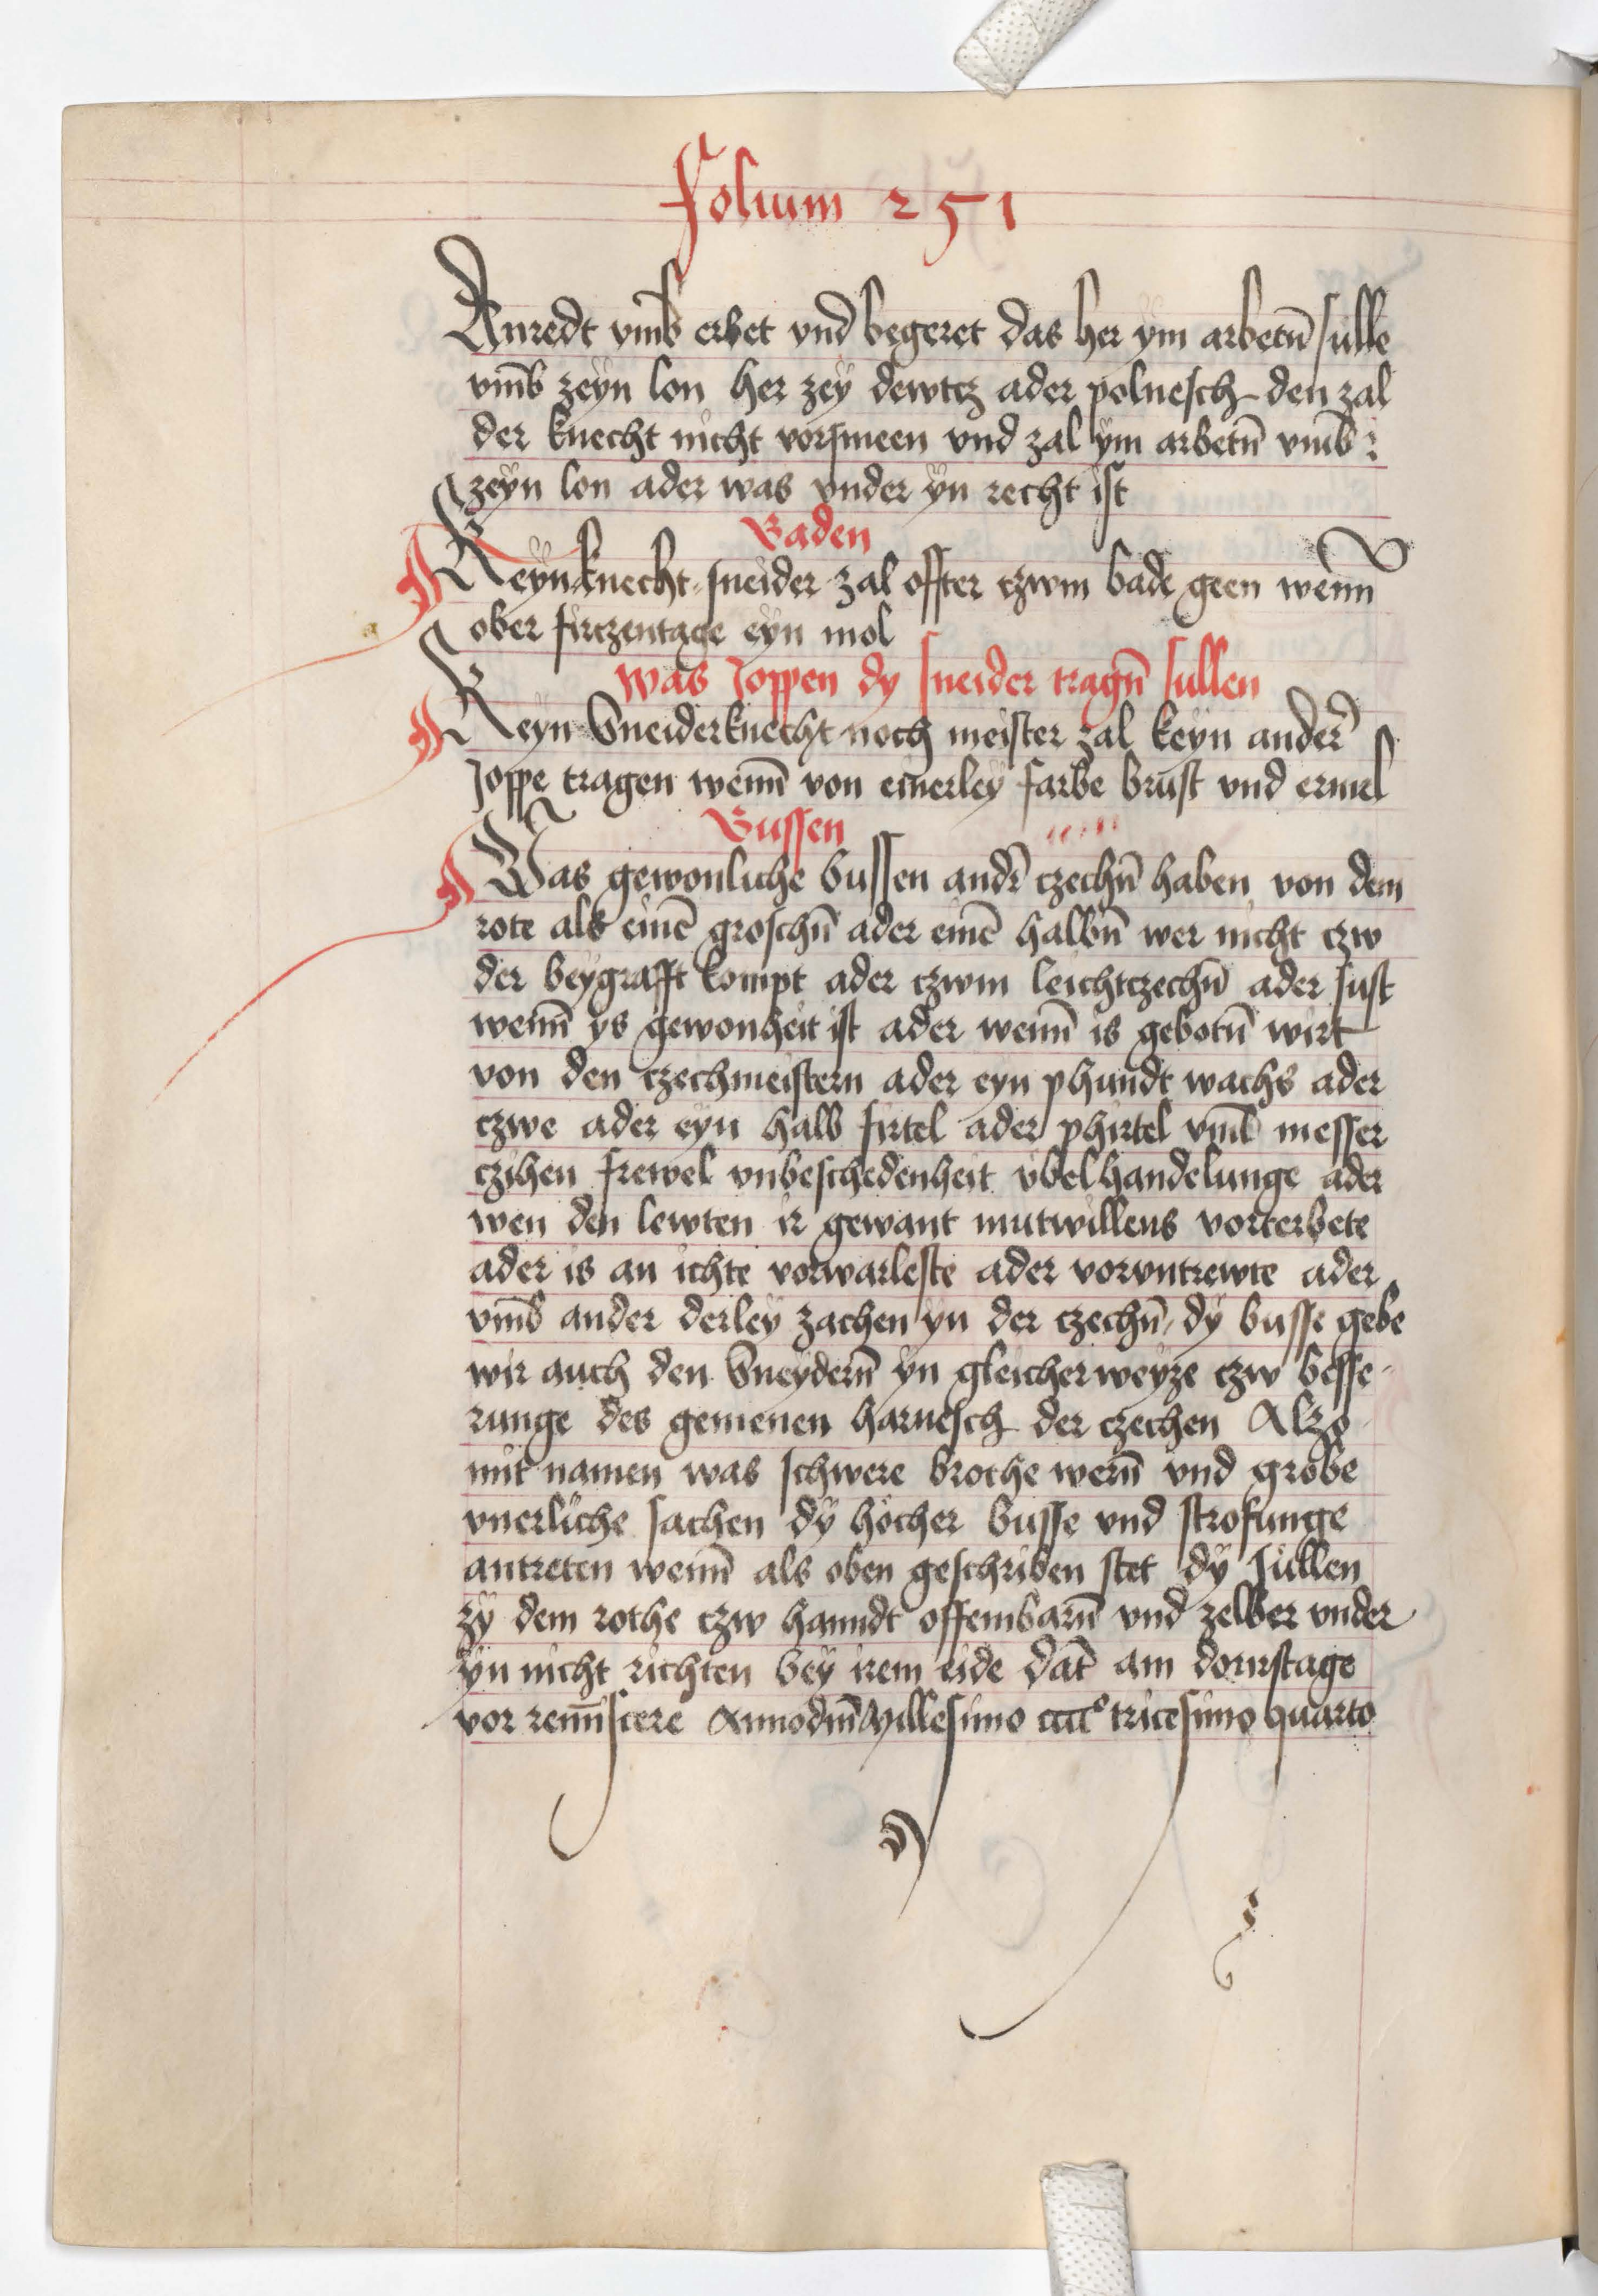 Folium 251
Anredt vmb erbet vnd begeret das her ym arbetn̄ sulle
vmb zeyn lon her zey dewtcz ader polnesch den zal
der knecht nicht vorsmeen vnd zal ym arbetn̄ vmb
zeyn lon ader was vnder yn recht ist
Baden
Keyn knecht sneider zal offter czwm bade geen wenn̄
ober firczentage eyn mol
Was Joppen dy sneider tragn̄ sullen
Keyn Sneiderknecht noch meister zal keyn ander̄
Joppe tragen wenn̄ von einerley farbe brust vnd ermel
Bussen
Was gewonliche bussen andr̄ czechn̄ haben von dem
rote als einē groschn̄ ader einē halbn̄ wer nicht czw
der beygrafft kompt ader czwm leichtczechn̄ ader sust
wenn̄ ys gewonheit ist ader wenn̄ is gebotn̄ wirt
von den czechmeistern ader eyn phundt wachs ader
czwe ader eyn halb firtel ader phirtel vmb messer
czihen frewel vnbeschedenheit vbelhandelunge ader
wen den lewten ir gewant mutwillens vorterbete
ader is an ichte vorwarleste ader voruntrewte ader
vmb ander derley zachen yn der czechn̄ dy busse gebe
wir auch den Sneydern̄ yn gleicher weyze czw besse-
runge des gemenen harnesch der czechen Alzo
mit namen was schwere brothe wern̄ vnd grobe
vnerliche sachen dy hocher busse vnd strofunge
antreten wenn̄ als oben geschriben stet dy sullen
zy dem rothe czw hanndt offembarn̄ vnd zelber vnder
yn nicht richten bey irem eide dat̄ am dornstage
vor remīscere Anno dnī Millesimo cccc° tricesimo quarto